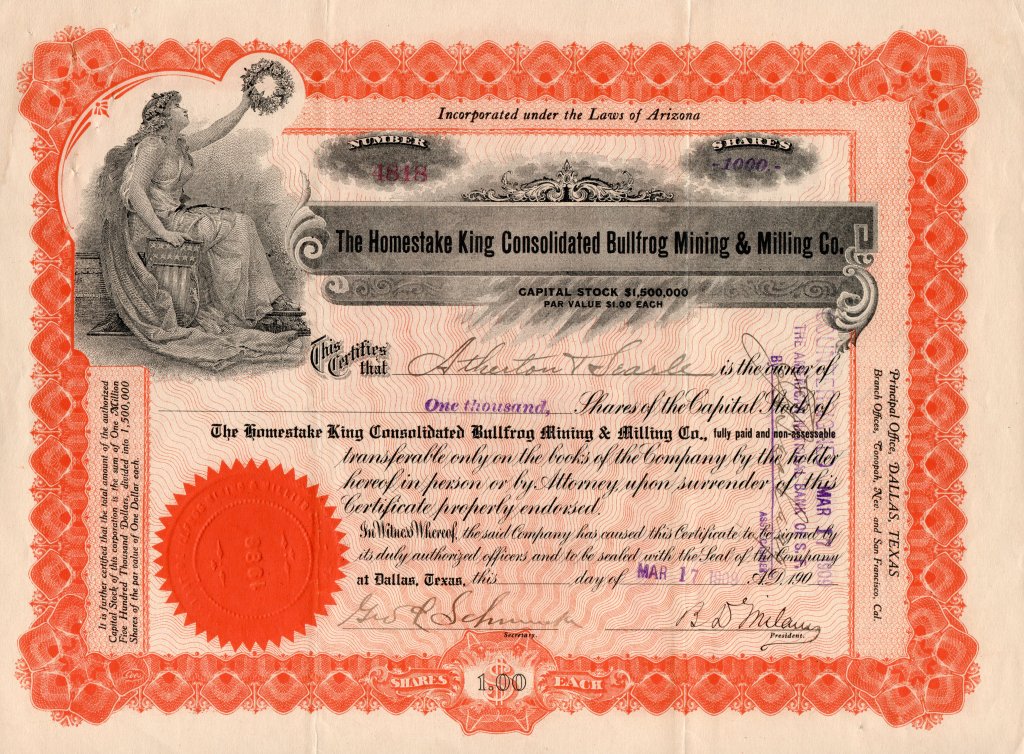 Incorporated under the Laws of Arizona
NUMBER
4848
SHARES
-1000.-
The Homestake King Consolidated Bullfrog Mining & Milling Co.
CAPITAL STOCK $1,500,000
PAR VALUE $1.00 EACH
This Certifies that Atherton & Searle is the owner of
One thousand, Shares of the Capital Stock of
The Homestake King Consolidated Bullfrog Mining & Milling Co., fully paid and non-assessable
transferable only on the books of the Company by the holder
hereof in person or by Attorney upon surrender of this
Certificate properly endorsed.
In Witness Whereof, the said Company has caused this Certificate to be signed by
its duly authorized officers and to be sealed with the Seal of the Company
at Dallas, Texas, this day of MAR 17 1909 A.D. 190
Secretary.
President.
SHARES 1.00 EACH
It is further certified that the total amount of the authorized
Capital Stock of this corporation is the sum of One Million
Five Hundred Thousand Dollars, divided into 1,500,000
Shares of the par value of One Dollar each.
Principal Office, DALLAS, TEXAS
Branch Offices, Tonopah, Nev. and San Francisco, Cal.
MAR 17 1909